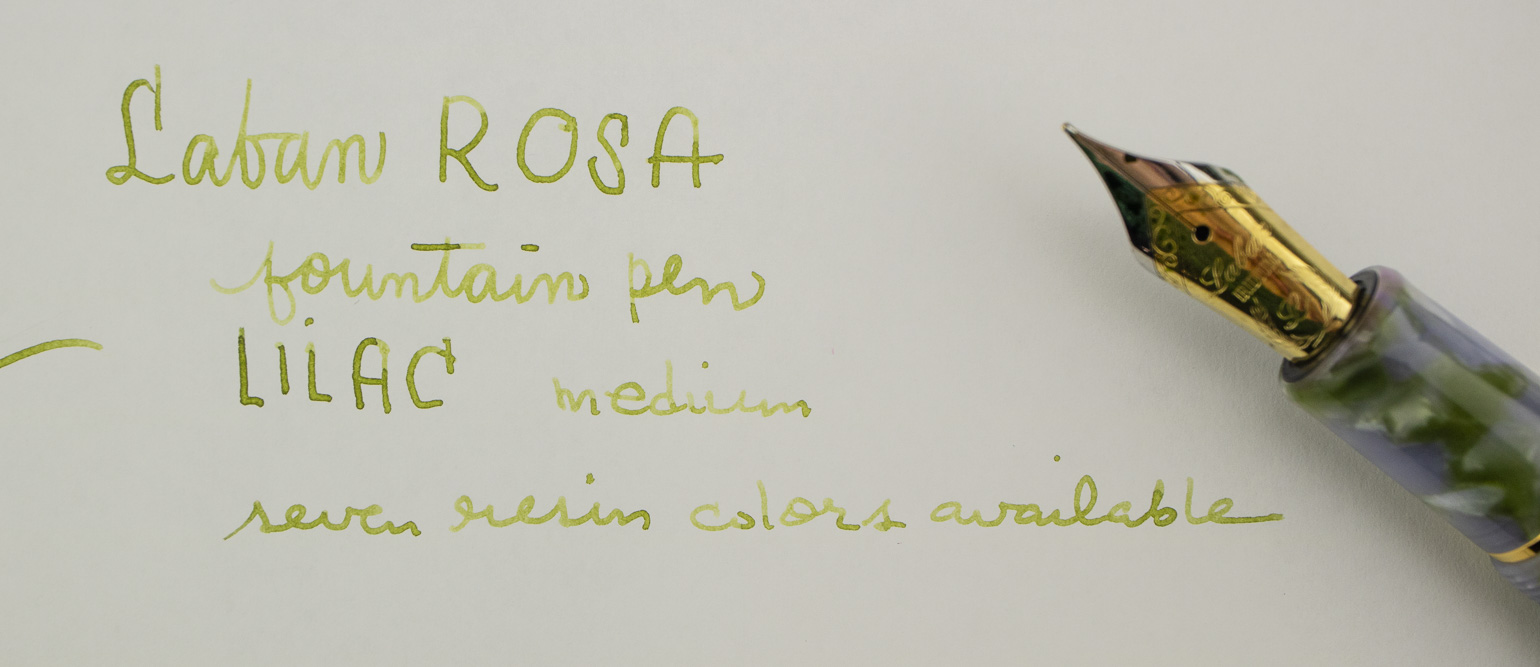 Laban ROSA
fountain pen
LiLAC medium
seven resin colors available
Laban